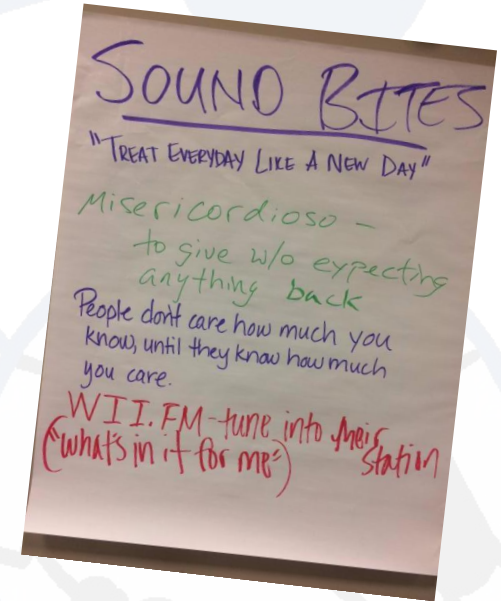 SOUND BITES
"TREAT EVERYDAY LIKE A NEW DAY"
Misericordioso -
to give w/o expecting
anything back
People don't care how much you
know, until they know how much
you care.
WII.FM - tune into their
station
("what's in it for me")